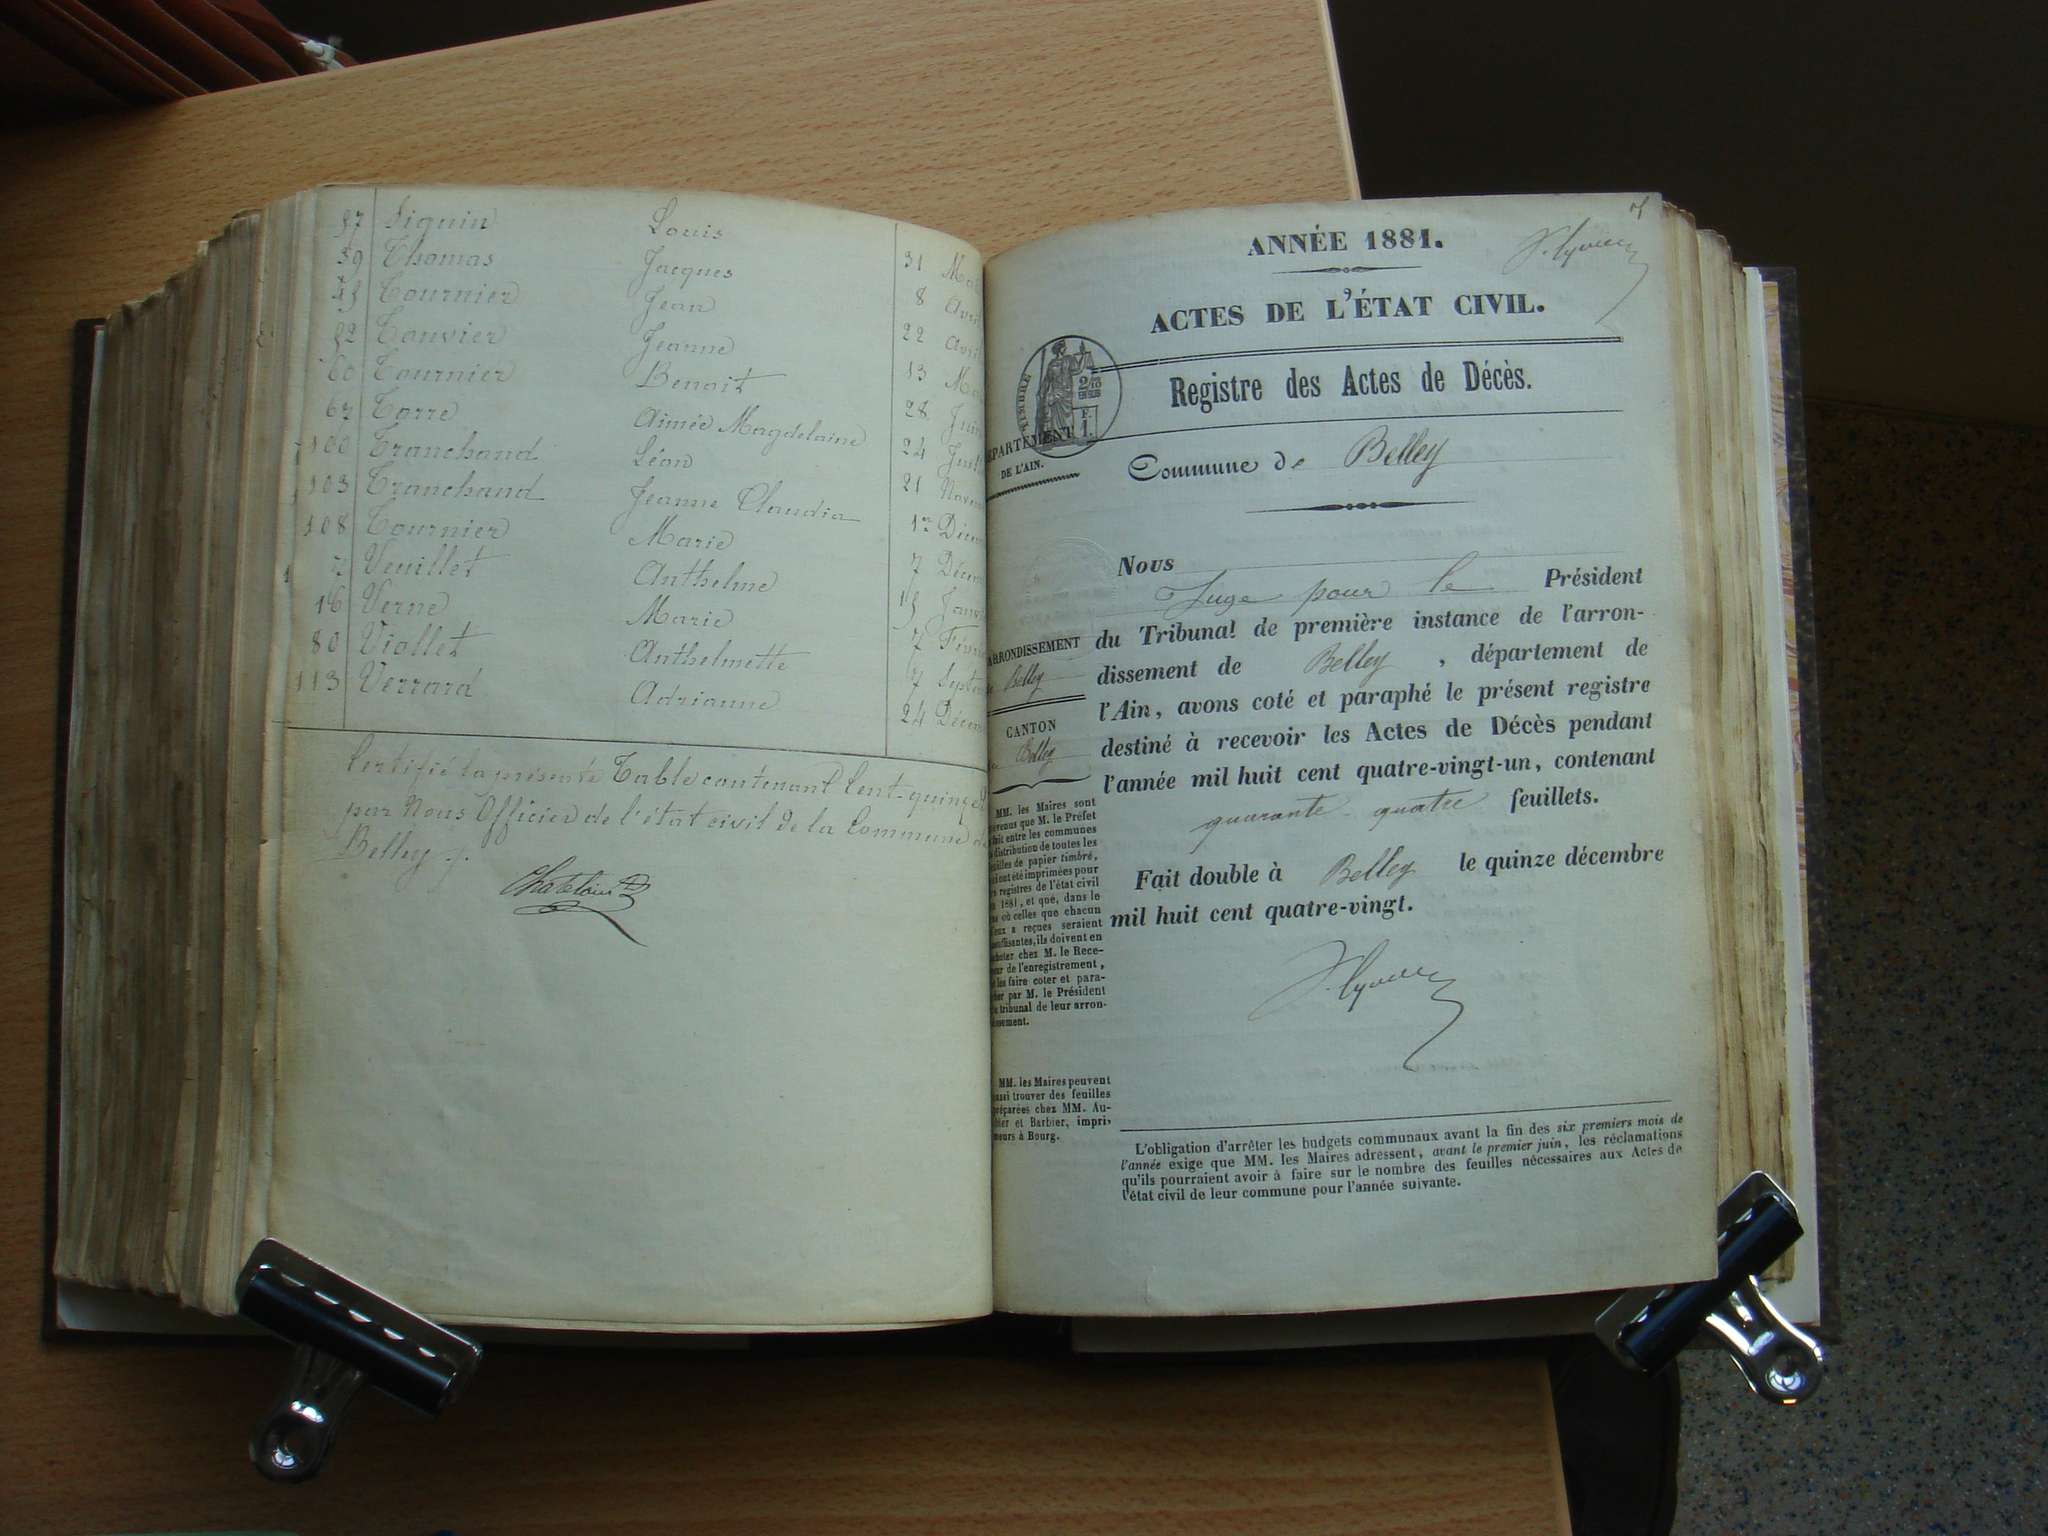 37 Siguin Louis 31
39 Thomas Jacques 8
43 Tournier Jean 22
52 Tanvier Jeanne 13
60 Tournier Benoit 28
67 Torre Aimée Magdelaine 24
100 Tranchand Léon 21
103 Tranchand Jeanne Claudia 1er
108 Tournier Marie 7
7 Veuillet Anthelme 15
16 Verne Marie 7
80 Viollet Anthelmette 7
113 Verrard Adrianne 24
Certifié la présente Table contenant Cent-quinze
par Nous Officier de l'état civil de la Commune de
Belley
ANNÉE 1881.
ACTES DE L'ÉTAT CIVIL.
TIMBRE
Registre des Actes de Décès.
DE L'AIN.
Commune de Belley
Nous
Juge pour le Président
du Tribunal de première instance de l'arron-
dissement de Belley, département de
l'Ain, avons coté et paraphé le présent registre
destiné à recevoir les Actes de Décès pendant
l'année mil huit cent quatre-vingt-un, contenant
quarante-quatre feuillets.
Fait double à Belley le quinze décembre
mil huit cent quatre-vingt.
ARRONDISSEMENT
Belley
CANTON
Belley
MM. les Maires sont
venus que M. le Préfet
fait entre les communes
distribution de toutes les
feuilles de papier timbré,
ont été imprimées pour
registres de l'état civil
1881, et que, dans le
où celles que chacun
d'eux a reçues seraient
insuffisantes, ils doivent en
acheter chez M. le Rece-
veur de l'enregistrement,
les faire coter et para-
pher par M. le Président
tribunal de leur arron-
dissement.
MM. les Maires peuvent
aussi trouver des feuilles
préparées chez MM. Au-
et Barbier, impri-
meurs à Bourg.
L'obligation d'arrêter les budgets communaux avant la fin des six premiers mois de
l'année exige que MM. les Maires adressent, avant le premier juin, les réclamations
qu'ils pourraient avoir à faire sur le nombre des feuilles nécessaires aux Actes de
l'état civil de leur commune pour l'année suivante.